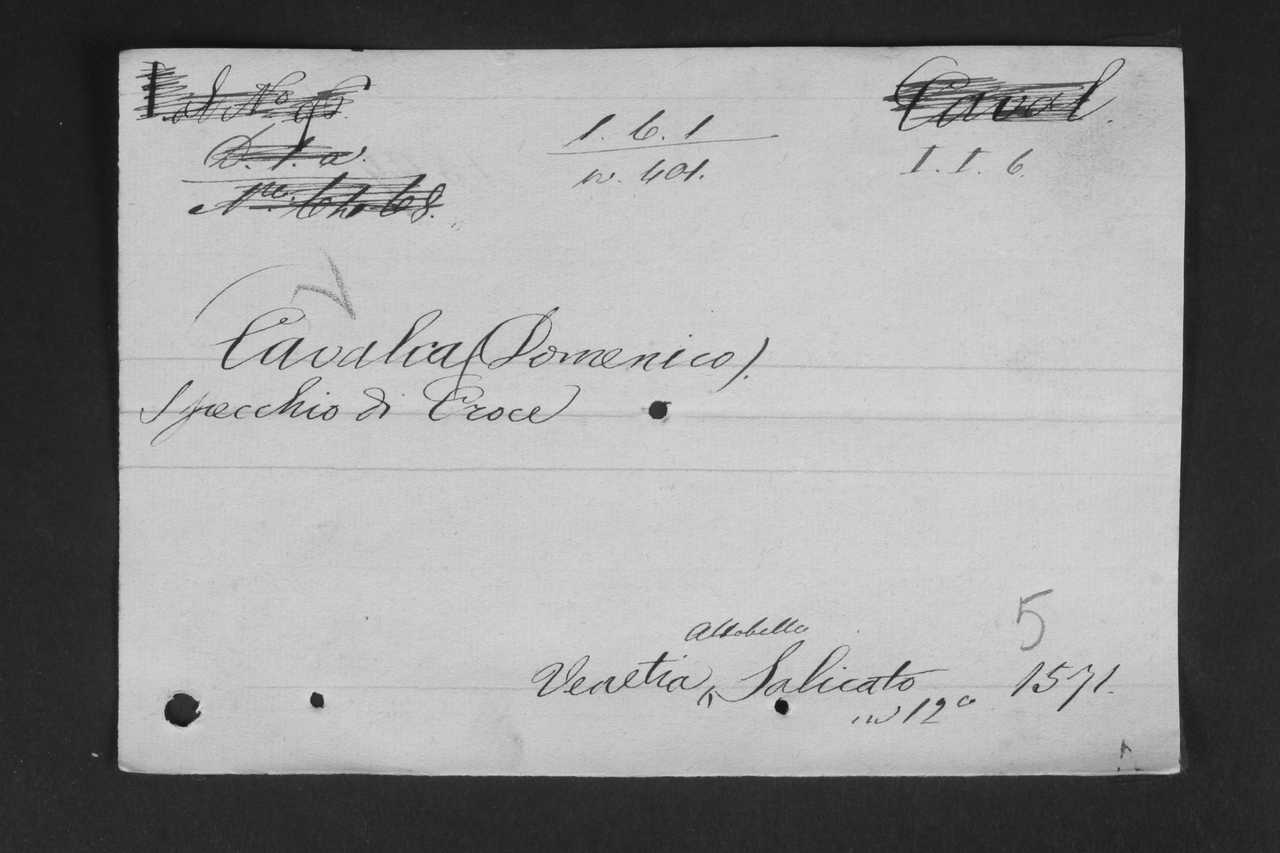 1. 6. 1
n. 401.
Caval.
I. I. 6.
D. 1. a.
Cavalca (Domenico).
Specchio di Croce
5
Altobello
Venetia, Salicato 1571.
in 12º